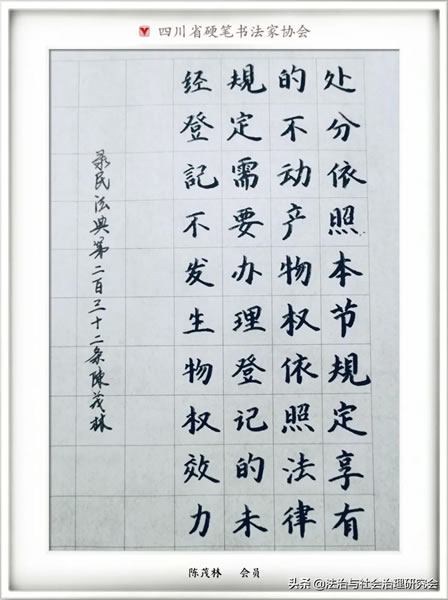 四川省硬笔书法家协会
处分依照本节規定享有
的不动产物权依照法律
規定需要办理登记的未
经登記不发生物权效力
录民法典第二百三十二条陳茂林
陈茂林 会员
头条 @法治与社会治理研究会